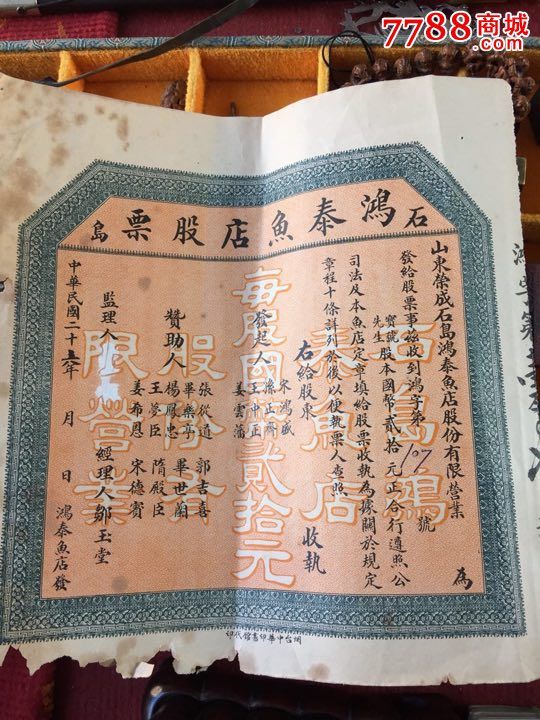 7788商城
石鴻泰魚店股票島
山東榮成石島鴻泰魚店股份有限營業 為
發給股票事茲收到鴻字第107號
寶號先生股本國幣貳拾元正合行遵照公
司法及本魚店定章填給股票收執為據關於規定
章程十條詳列於後以便執票人查照
右給股東 收執
發起人
宋鴻盛
孫正齊
王中正
姜雲藩
贊助人
張從道 郭吉喜
畢樂亭 畢世蘭
楊鳳忠 隋殿臣
王夢臣 宋德賓
姜希恩
監理人
經理人鄒玉堂
中華民國二十五年 月 日 鴻泰魚店發
石島鴻
泰魚店
每股國幣貳拾元
股份有
限營業
烟台中華印書館代印